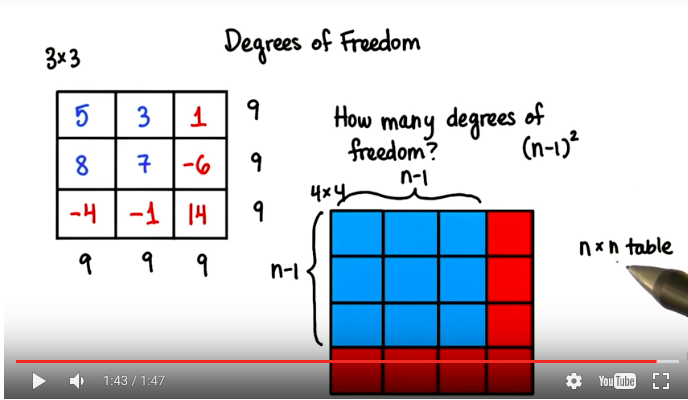 Degrees of Freedom
3×3
5 3 1 9
8 7 -6 9
-4 -1 14 9
9 9 9
How many degrees of
freedom? (n-1)²
4×4 n-1
n-1
n×n table
1:43 / 1:47
YouTube